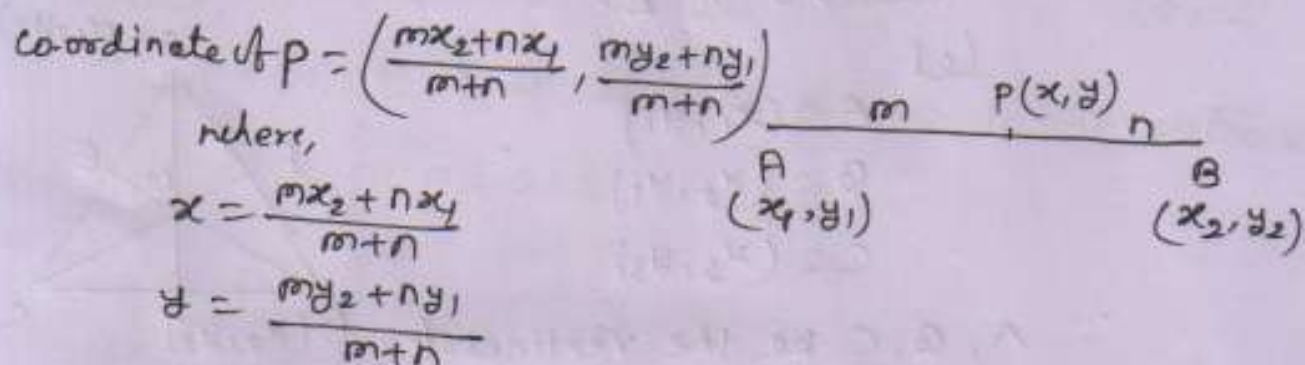 co-ordinate of p = (mx₂+nx₁/m+n , my₂+ny₁/m+n)
where,
x = mx₂+nx₁/m+n
y = my₂+ny₁/m+n
m P(x, y) n
A B
(x₁, y₁) (x₂, y₂)